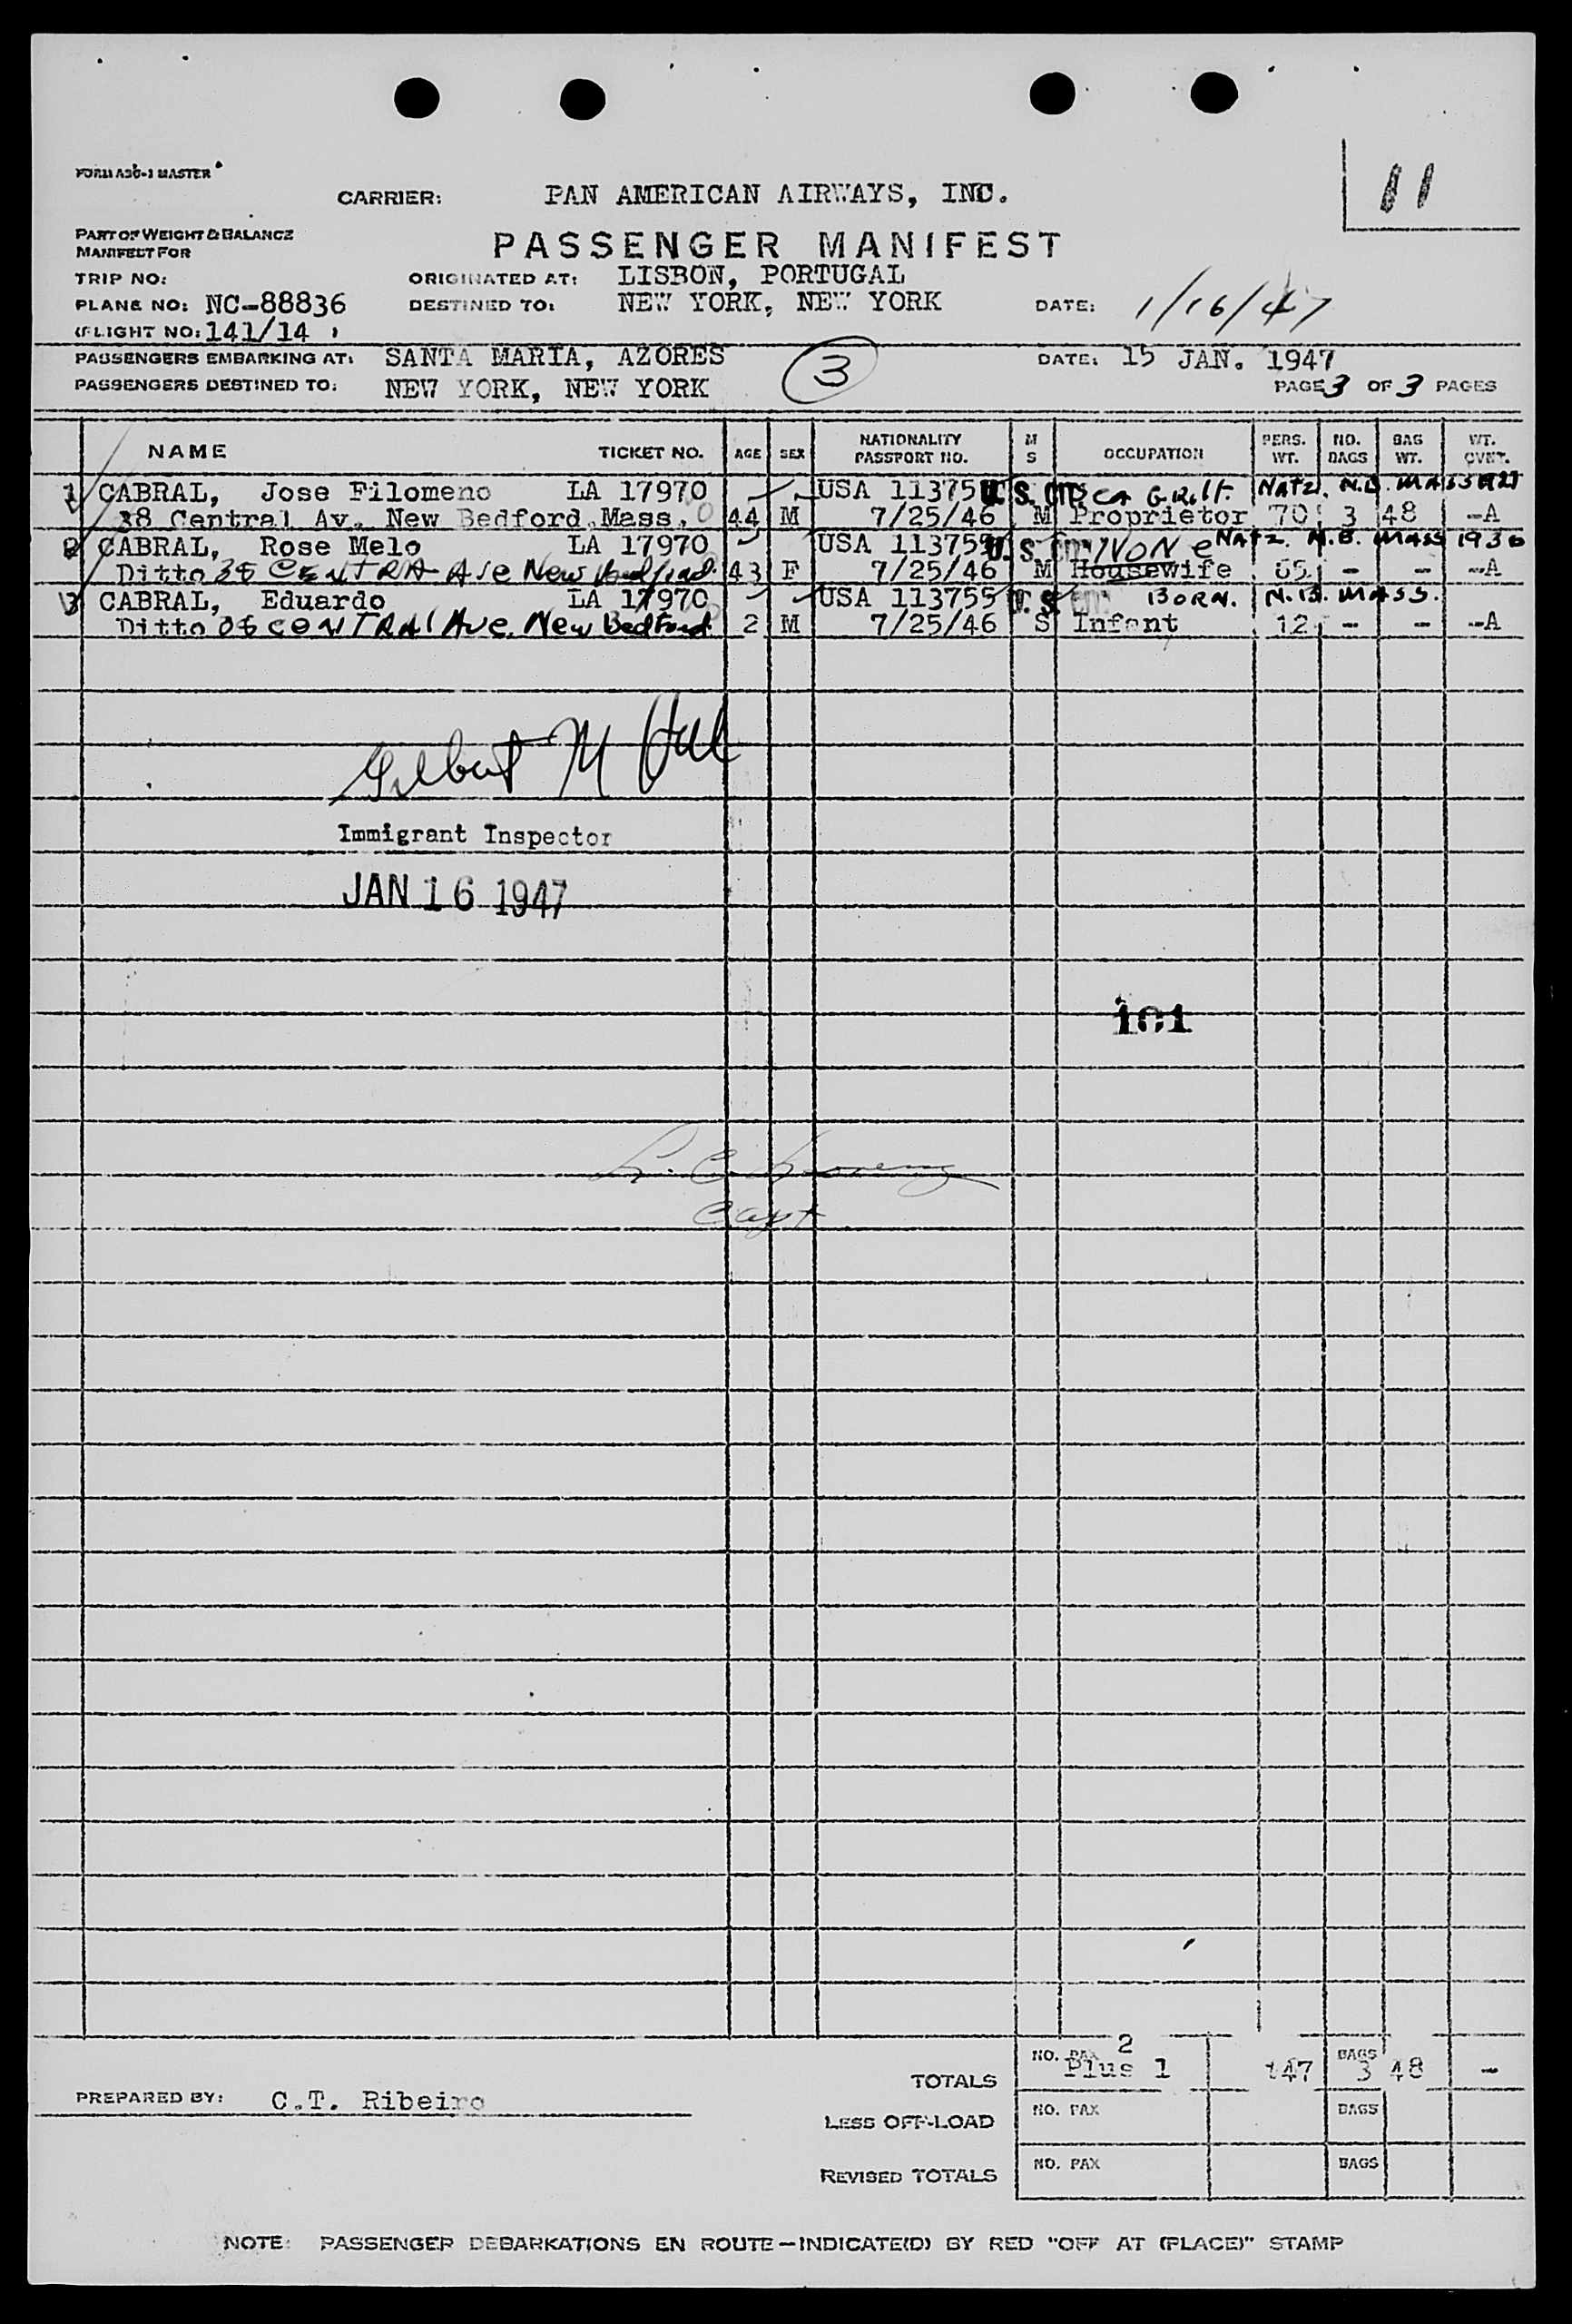 FORM ASC-1 MASTER
CARRIER: PAN AMERICAN AIRWAYS, INC.
11
PART OF WEIGHT & BALANCE
MANIFEST FOR
PASSENGER MANIFEST
TRIP NO: ORIGINATED AT: LISBON, PORTUGAL
PLANE NO: NC-88836 DESTINED TO: NEW YORK, NEW YORK DATE: 1/16/47
(FLIGHT NO: 141/14 )
PASSENGERS EMBARKING AT: SANTA MARIA, AZORES DATE: 15 JAN. 1947
3
PASSENGERS DESTINED TO: NEW YORK, NEW YORK PAGE 3 OF 3 PAGES
NAME TICKET NO. AGE SEX NATIONALITY PASSPORT NO. M S OCCUPATION PERS. WT. NO. BAGS BAG WT. WT. CVNT.
1 CABRAL, Jose Filomeno LA 17970 USA 11375 U.S. CIT NATZ. N.B. MASS
38 Central Av. New Bedford, Mass. 44 M 7/25/46 M Proprietor 70 3 48 -A
2 CABRAL, Rose Melo LA 17970 USA 113755 U.S. CIT NONE NATZ. N.B. MASS 1936
Ditto 38 CENTRAL Ave New Bedford. 43 F 7/25/46 M Housewife 65 - - -A
3 CABRAL, Eduardo LA 17970 USA 113755 U.S. CIT BORN. N.B. MASS.
Ditto 38 CENTRAL Ave. New Bedford. 2 M 7/25/46 S Infant 12 - - -A
Gilbert M
Immigrant Inspector
JAN 16 1947
101
Capt
NO. PAX 2 BAGS
TOTALS Plus 1 147 3 48 -
PREPARED BY: C.T. Ribeiro
LESS OFF-LOAD NO. PAX BAGS
REVISED TOTALS NO. PAX BAGS
NOTE: PASSENGER DEBARKATIONS EN ROUTE—INDICATE(D) BY RED "OFF AT (PLACE)" STAMP